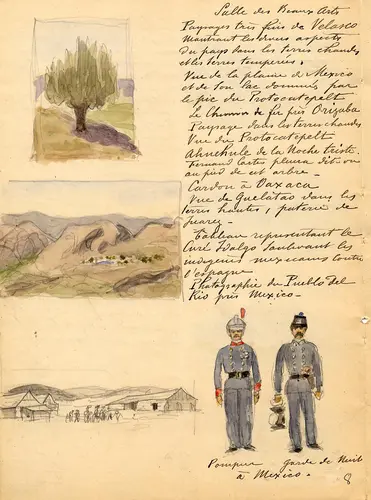 Salle des Beaux Arts
Paysages très fins de Velasco
montrant les divers aspects
du pays dans les terres chaudes
et les terres temperées.
Vue de la plaine de Mexico
et de son lac dominés par
le pic du Protocatepelt.
Le Chemin de fer près Orizaba
Paysage dans les terres chaudes
Vue du Protocatepelt
Ahuehute de la Noche triste.
Fernand Cortes pleura dit-on
au pied de cet arbre-
Cardon à Oaxaca
Vue de Quelatao dans les
terres hautes, patrie de
Juarez-
Tableau representant le
Curé Idalgo soulevant les
indigènes mexicains contre
l'espagne
Photographie du Pueblo del
Rio près Mexico-
Pompier garde de Nuit
à Mexico.
8